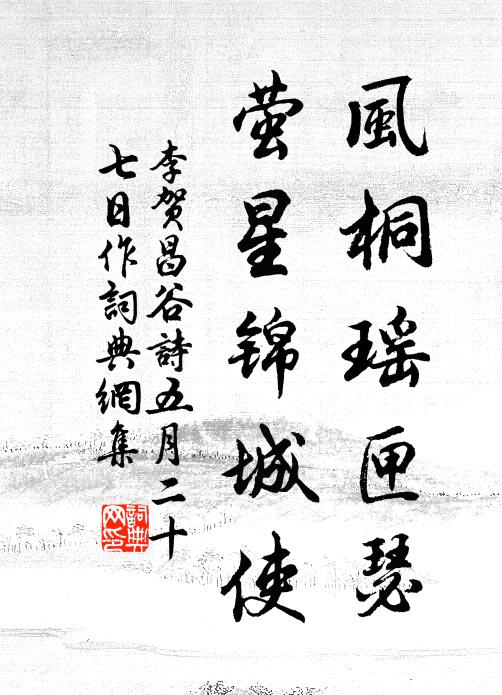 風桐瑶匣瑟
萤星锦城使
李贺昌谷詩五月二十
七日作詞典網集
詞典
网印